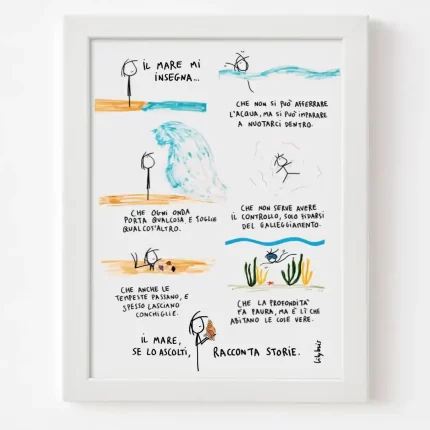 IL MARE MI
INSEGNA...
CHE NON SI PUÒ AFFERRARE
L'ACQUA, MA SI PUÒ IMPARARE
A NUOTARCI DENTRO.
CHE OGNI ONDA
PORTA QUALCOSA E TOGLIE
QUALCOS'ALTRO.
CHE NON SERVE AVERE
IL CONTROLLO, SOLO FIDARSI
DEL GALLEGGIAMENTO.
CHE ANCHE LE
TEMPESTE PASSANO, E
SPESSO LASCIANO
CONCHIGLIE.
CHE LA PROFONDITÀ
FA PAURA, MA È LÌ CHE
ABITANO LE COSE VERE.
IL MARE,
SE LO ASCOLTI, RACCONTA STORIE.